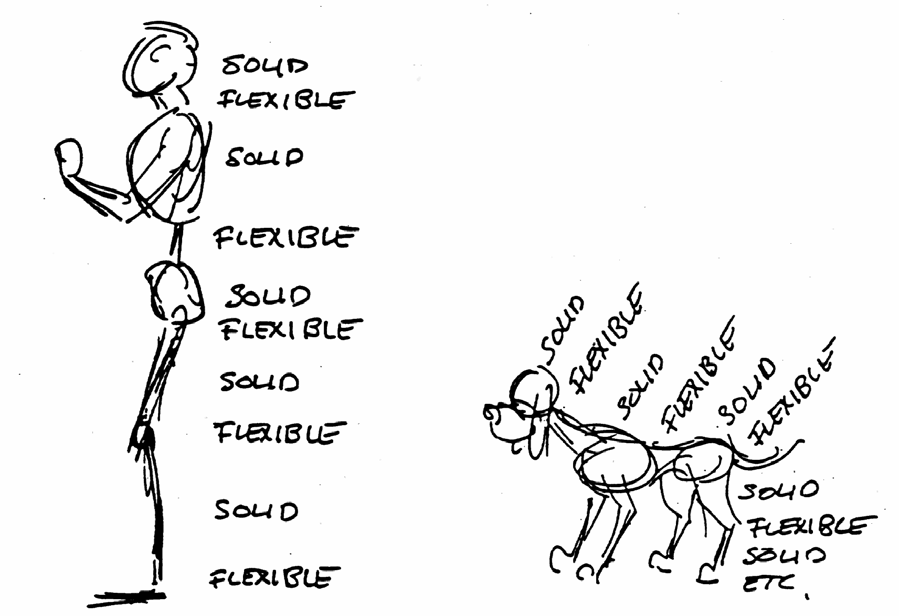 SOLID
FLEXIBLE
SOLID
FLEXIBLE
SOLID
FLEXIBLE
SOLID
FLEXIBLE
SOLID
FLEXIBLE
SOLID
FLEXIBLE
SOLID
FLEXIBLE
SOLID
FLEXIBLE
SOLID
FLEXIBLE
SOLID
ETC.